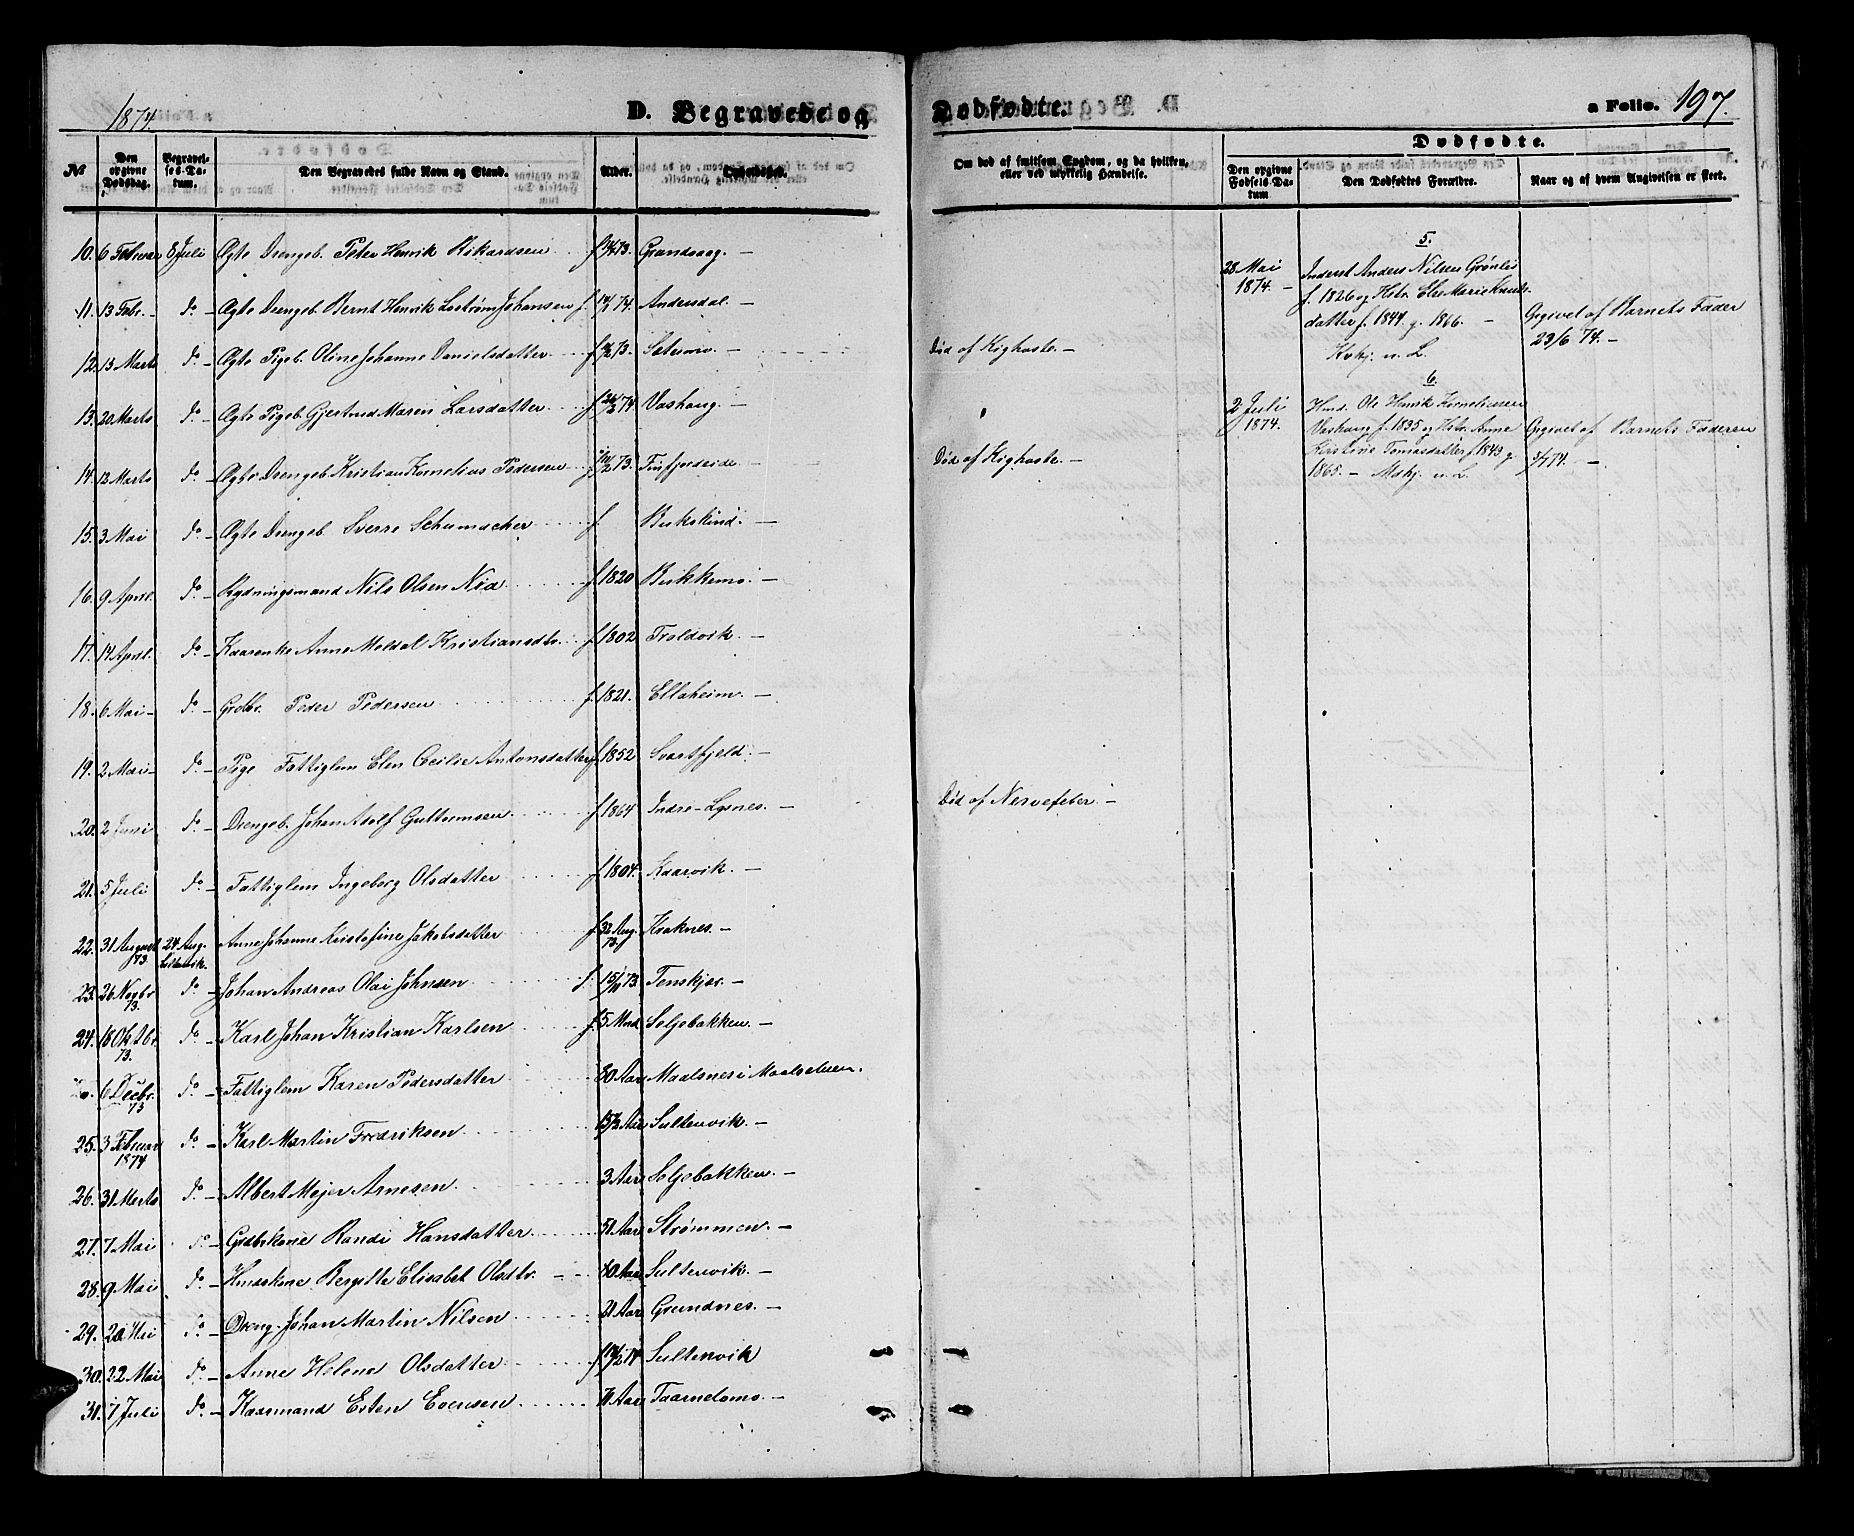 1874.
D. Begravede og Dødfødte.
a Folio. 197.
No
Den opgivne Dødsdag.
Begravelses-Datum.
Den Begravedes fulde Navn og Stand.
Alder.
Opholdsted.
Om død af smitsom Sygdom, og da hvilken, eller ved ulykkelig Hændelse.
Dødfødte.
Den opgivne Fødsels-Datum
Den Dødfødtes Forældre.
Naar og af hvem Angivelsen er skeet.
10. 6 Februar 8 Juli Ægte Drengeb. Peter Henrik Rikardsen f. 73. Grundvaag. —
11. 13 Febr. — do — Ægte Drengeb. Bernt Henrik Johansen f. 74. Andersdal. —
12. 13 Marts do — Ægte Pigeb. Oline Johanne Danielsdatter f. 73. — Død af Kighoste. —
13. 20 Marts do — Ægte Pigeb. Gjertrud Maren Larsdatter f. 74 Vashaug. —
14. 12 Marts do — Ægte Drengeb. Kristian Kornelius Pedersen 73. Finfjordeide. — Død af Kighoste. —
15. 3 Mai do — Ægte Drengeb. Sverre Schumacher f. —
16. 9 April. do — Rydningsmand Nils Olsen f. 1820 Birkkemo. —
17. 14 April. do — Kaarenke Anne Meldal Kristiansdtr. f. 1802 Troldvik. —
18. 6 Mai — do — Grdbr. Peder Pedersen f. 1821. Elloheim. —
19. 2 Mai — do — Pige Fattiglem Elen Cecilie Antonsdatter f. 1852 Svartfjeld. —
20. 2 Juni do — Drengeb. Johan Adolf Guttormsen f. 1864 Indre-Lysnes. — Død af Nervefeber. —
21. 5 Juli do — Fattiglem Ingeborg Olsdatter f. 1804. Kaarvik. —
22. 31 August 73. 24 Aug. Anne Johanne Kristofine Jakobsdatter f. Aug. 73. Kraknes. —
23. 26 Novbr. 73. do — Johan Andreas Olai Johnsen f. 15/10 73. Tenskjær. —
24. 18 Oktbr. 73. do — Karl Johan Kristian Karlsen f. 5 Mnd. Seljebakken. —
6 Decbr. 73 do — Fattiglem Karen Pedersdatter 80 Aar Maalsnes i Maalselven.
25. 3 Februar 1874 do — Karl Martin Fredriksen Aar Sultenvik. —
26. 31 Marts do — Albert Mejer Arnesen 3 Aar Seljebakken. —
27. 7 Mai do — Grdbrskone Randi Hansdatter 51 Aar Strømmen. —
28. 9 Mai do — Hmdskone Bergitte Elisabet Olsdtr. — 80 Aar Sultenvik. —
29. 20 Mai do — Dreng Johan Martin Nilsen 21 Aar Grundnes. —
30. 22 Mai do — Anne Helene Olsdatter f. 74 Sultenvik
31. 7 Juli do — Kaarmand Esten Evensen Aar Taarnelomo. —
5.
28 Mai 1874. —
Inderst Anders Nilsen Grønlis
f. 1826 og Hstr. Else Marie Knuts-
datter f. 1844 g. 1866. —
Kvkj. u. L.
Opgivet af Barnets Fader
23/6 74. —
6.
2 Juli 1874.
Hmd. Ole Henrik Korneliusen
Vashaug f. 1835 og Hstr. Anne
Kristine Tomasdatter f. 1843 g.
1865. — Mskj. u. L.
Opgivet af Barnets Faderen
5/7 74. —